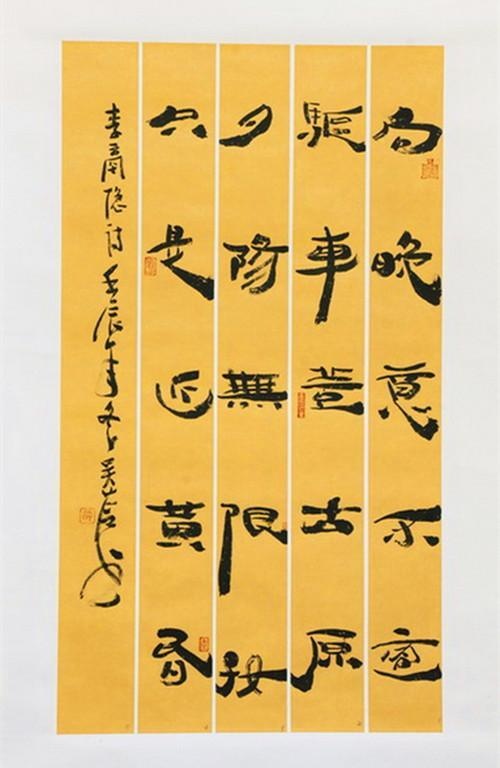 向晚意不適
驅車登古原
夕陽無限好
只是近黃昏
李商隱詩壬辰年冬